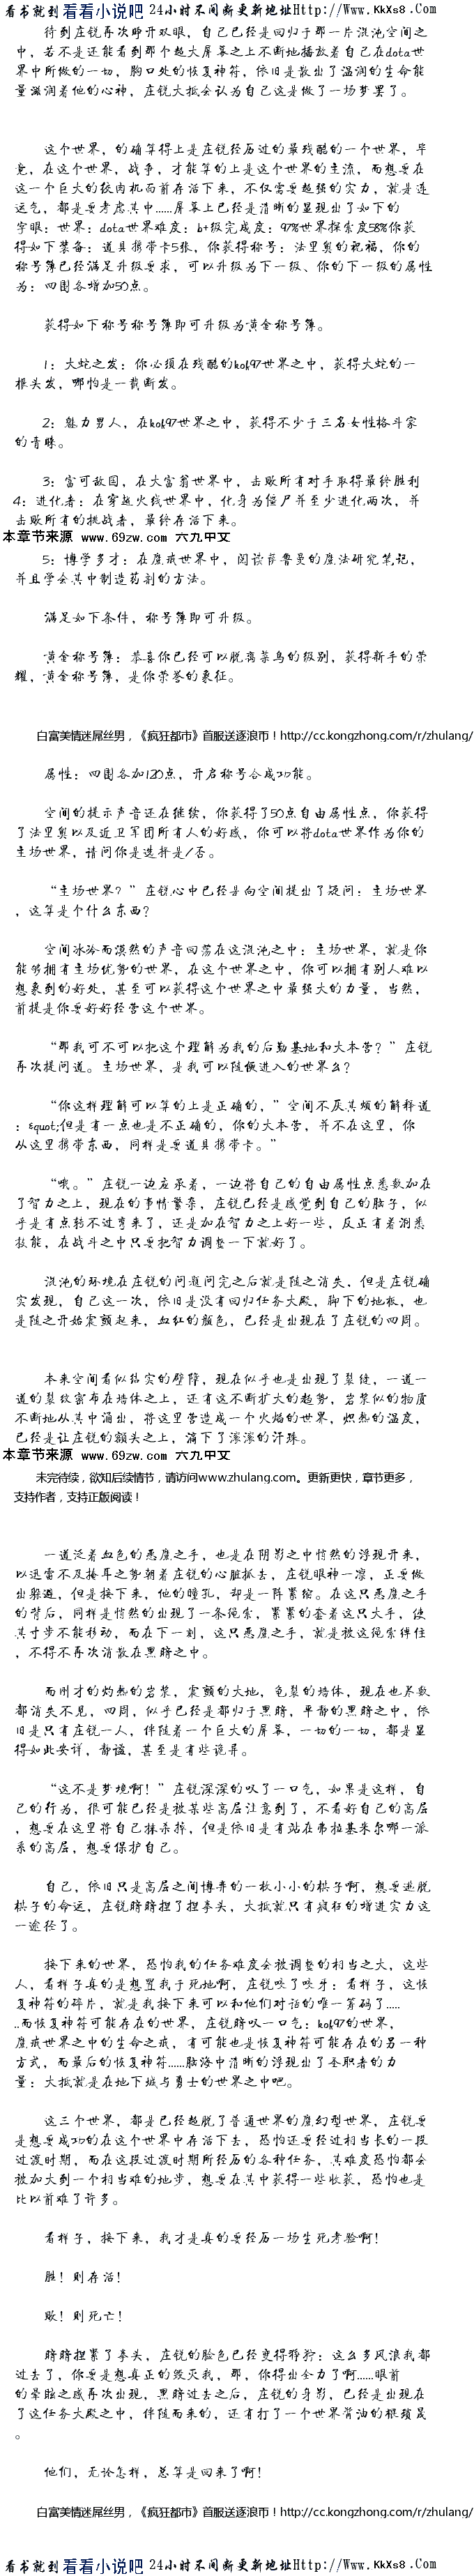 看书就到看看小说吧 24小时不间断更新地址Http://Www.KkXs8.Com
待到庄锐再次睁开双眼，自己已经是回归于那一片混沌空间之
中，若不是还能看到那个超大屏幕之上不断地播放着自己在dota世
界中所做的一切，胸口处的恢复神符，依旧是散出了温润的生命能
量滋润着他的心神，庄锐大抵会认为自己这是做了一场梦罢了。
这个世界，的确算得上是庄锐经历过的最残酷的一个世界，毕
竟，在这个世界，战争，才能算的上是这个世界的主流，而想要在
这一个巨大的绞肉机面前存活下来，不仅需要超强的实力，就是连
运气，都是要考虑其中......屏幕上已经是清晰的显现出了如下的
字眼：世界：dota世界难度：b+级完成度：97%世界探索度58%你获
得如下装备：道具携带卡5张，你获得称号：法里奥的祝福，你的
称号簿已经满足升级要求，可以升级为下一级、你的下一级的属性
为：四围各增加50点。
获得如下称号称号簿即可升级为黄金称号簿。
1：大蛇之发：你必须在残酷的kof97世界之中，获得大蛇的一
根头发，哪怕是一截断发。
2：魅力男人，在kof97世界之中，获得不少于三名女性格斗家
的青睐。
3：富可敌国，在大富翁世界中，击败所有对手取得最终胜利
4：进化者：在穿越火线世界中，化身为僵尸并至少进化两次，并
击败所有的挑战者，最终存活下来。
本章节来源 www.69zw.com 六九中文
5：博学多才：在魔戒世界中，阅读萨鲁曼的魔法研究笔记，
并且学会其中制造药剂的方法。
满足如下条件，称号簿即可升级。
黄金称号簿：恭喜你已经可以脱离菜鸟的级别，获得新手的荣
耀，黄金称号簿，是你荣誉的象征。
白富美情迷屌丝男，《疯狂都市》首服送逐浪币！http://cc.kongzhong.com/r/zhulang/
属性：四围各加120点，开启称号合成功能。
空间的提示声音还在继续，你获得了50点自由属性点，你获得
了法里奥以及近卫军团所有人的好感，你可以将dota世界作为你的
主场世界，请问你是选择是/否。
“主场世界？”庄锐心中已经是向空间提出了疑问：主场世界
，这算是个什么东西？
空间冰冷而漠然的声音回荡在这混沌之中：主场世界，就是你
能够拥有主场优势的世界，在这个世界之中，你可以拥有别人难以
想象到的好处，甚至可以获得这个世界之中最强大的力量，当然，
前提是你要好好经营这个世界。
“那我可不可以把这个理解为我的后勤基地和大本营？”庄锐
再次提问道。主场世界，是我可以随候进入的世界么？
“你这样理解可以算的上是正确的，”空间不厌其烦的解释道
：&quot;但是有一点也是不正确的，你的大本营，并不在这里，你
从这里携带东西，同样是要道具携带卡。”
“哦。”庄锐一边应承着，一边将自己的自由属性点悉数加在
了智力之上，现在的事情繁杂，庄锐已经是感觉到自己的脑子，似
乎是有点转不过弯来了，还是加在智力之上好一些，反正有着洞悉
技能，在战斗之中只要把智力调整一下就好了。
混沌的环境在庄锐的问题问完之后就是随之消失，但是庄锐确
实发现，自己这一次，依旧是没有回归任务大殿，脚下的地板，也
是随之开始震颤起来，血红的颜色，已经是出现在了庄锐的四周。
本来空间看似结实的壁障，现在似乎也是出现了裂缝，一道一
道的裂纹密布在墙体之上，还有这不断扩大的趋势，岩浆似的物质
不断地从其中涌出，将这里营造成一个火焰的世界，炽热的温度，
已经是让庄锐的额头之上，滴下了滚滚的汗珠。
本章节来源 www.69zw.com 六九中文
未完待续，欲知后续情节，请访问www.zhulang.com。更新更快，章节更多，
支持作者，支持正版阅读！
一道泛着血色的恶魔之手，也是在阴影之中悄然的浮现开来，
以迅雷不及掩耳之势朝着庄锐的心脏抓去，庄锐眼神一凛，正要做
出躲避，但是接下来，他的瞳孔，却是一阵紧缩。在这只恶魔之手
的背后，同样是悄然的出现了一条绳索，紧紧的套着这只大手，使
其寸步不能移动，而在下一刻，这只恶魔之手，就是被这绳索绊住
，不得不再次消散在黑暗之中。
而刚才的灼热的岩浆，震颤的大地，龟裂的墙体，现在也尽数
都消失不见，四周，似乎已经是都归于黑暗，平静的黑暗之中，依
旧是只有庄锐一人，伴随着一个巨大的屏幕，一切的一切，都是显
得如此安详，静谧，甚至是有些诡异。
“这不是梦境啊！”庄锐深深的叹了一口气，如果是这样，自
己的行为，很可能已经是被某些高层注意到了，不看好自己的高层
，想要在这里将自己抹杀掉，但是依旧是有站在弗拉基米尔哪一派
系的高层，想要保护自己。
自己，依旧只是高层之间博弈的一枚小小的棋子啊，想要逃脱
棋子的命运，庄锐暗暗捏了捏拳头，大抵就只有疯狂的增进实力这
一途径了。
接下来的世界，恐怕我的任务难度会被调整的相当之大，这些
人，看样子真的是想置我于死地啊，庄锐咬了咬牙：看样子，这恢
复神符的碎片，就是我接下来可以和他们对话的唯一筹码了.....
..而恢复神符可能存在的世界，庄锐暗叹一口气：kof97的世界，
魔戒世界之中的生命之戒，有可能也是恢复神符可能存在的另一种
方式，而最后的恢复神符......脑海中清晰的浮现出了圣职者的力
量：大抵就是在地下城与勇士的世界之中吧。
这三个世界，都是已经超脱了普通世界的魔幻型世界，庄锐要
是想要成功的在这个世界中存活下去，恐怕还要经过相当长的一段
过渡时期，而在这段过渡时期所经历的各种任务，其难度恐怕都会
被加大到一个相当难的地步，想要在其中获得一些收获，恐怕也是
比以前难了许多。
看样子，接下来，我才是真的要经历一场生死考验啊！
胜！则存活！
败！则死亡！
暗暗捏紧了拳头，庄锐的脸色已经变得狰狞：这么多风浪我都
过去了，你要是想真正的毁灭我，那，你得出全力了啊......眼前
的晕眩之感再次出现，黑暗过去之后，庄锐的身影，已经是出现在
了这任务大殿之中，伴随而来的，还有打了一个世界酱油的根须晟
。
他们，无论怎样，总算是回来了啊！
白富美情迷屌丝男，《疯狂都市》首服送逐浪币！http://cc.kongzhong.com/r/zhulang/
看书就到看看小说吧 24小时不间断更新地址Http://Www.KkXs8.Com